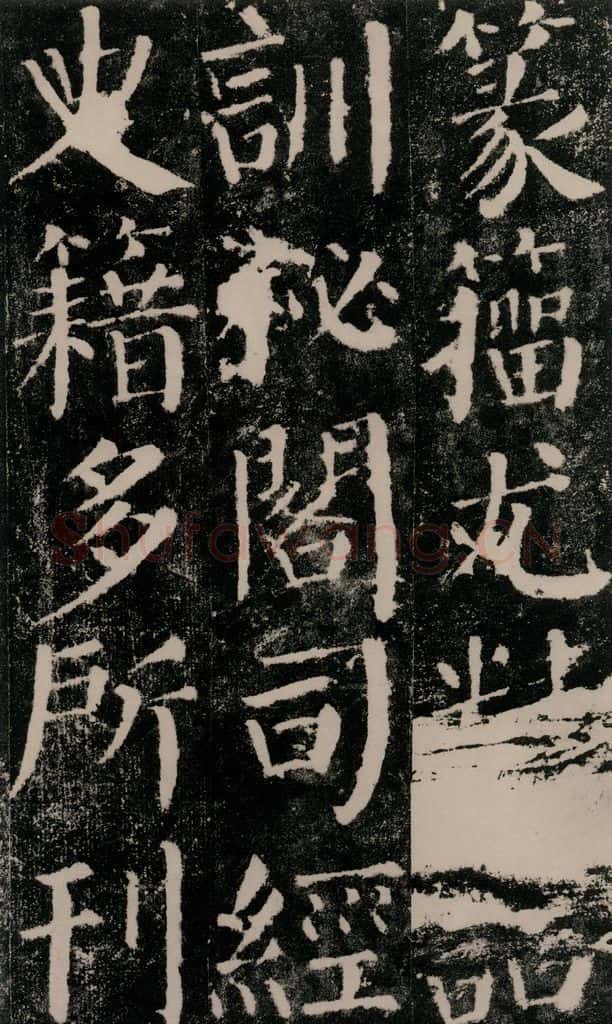 篆籕尤
訓秘閣司經
史籍多所刊
Shufawang.CN